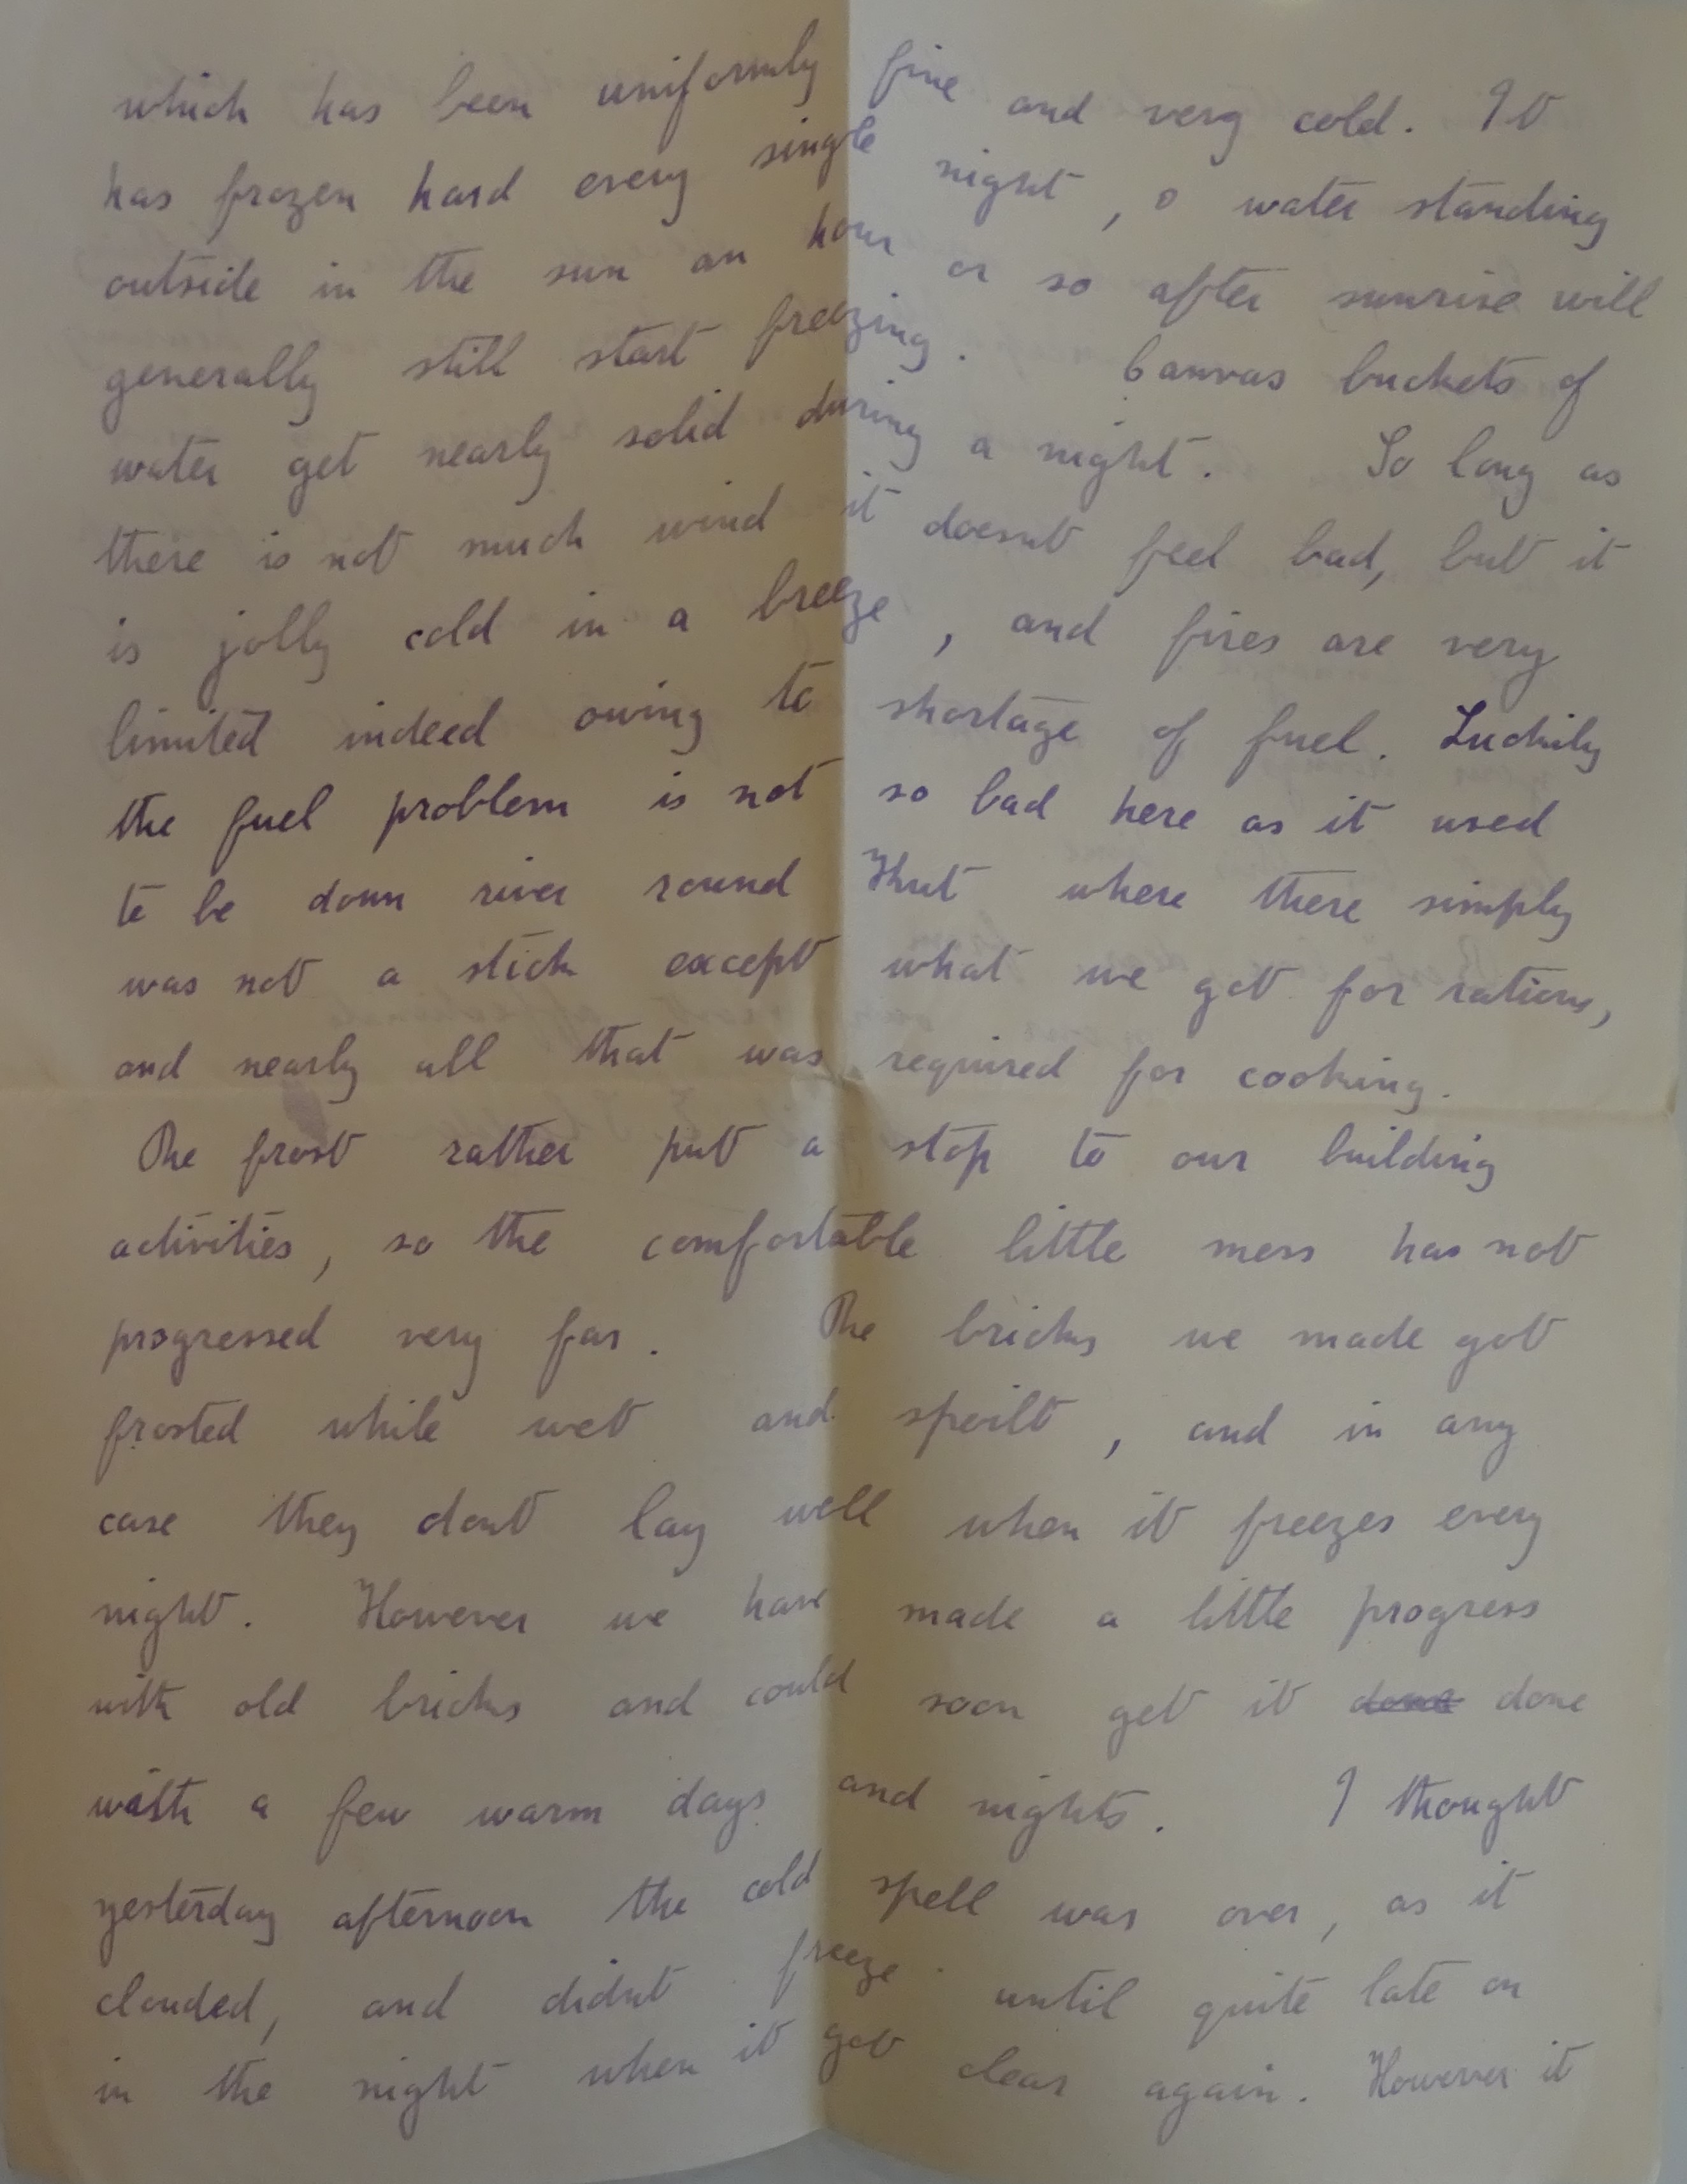 which has been uniformly fine and very cold. It
has frozen hard every single night, & water standing
outside in the sun an hour or so after sunrise will
generally still start freezing. Canvas buckets of
water get nearly solid during a night. So long as
there is not much wind it doesnt feel bad, but it
is jolly cold in a breeze, and fires are very
limited indeed owing to shortage of fuel. Luckily
the fuel problem is not so bad here as it used
to be down river round Khut where there simply
was not a stick except what we got for rations,
and nearly all that was required for cooking.
The frost rather put a stop to our building
activities, so the comfortable little mess has not
progressed very far. The bricks we made got
frosted while wet and spoilt, and in any
case they dont lay well when it freezes every
night. However we have made a little progress
with old bricks and could soon get it done done
with a few warm days and nights. I thought
yesterday afternoon the cold spell was over, as it
clouded, and didnt freeze until quite late on
in the night when it got clear again. However it